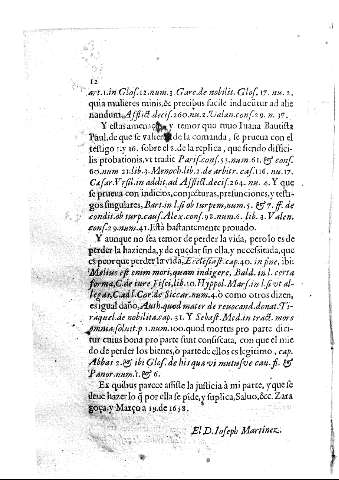 12
art. 1. in Glos. 12. num. 3. Garc. de nobilit. Glos. 17. nu. 2.
quia mulieres minis, & precibus facile inducūtur ad alie
nandum, Afflict. decis. 260. nu. 2. Valan. conf. 29. n. 17.
Y estas amenaças, y temor que tuuo Iuana Bautista
Paul, de que se valieron de la comanda, se prueua con el
testigo 15. y 16. sobre el 2. de la replica, que siendo diffici
lis probationis, vt tradit Paris. conf. 53. num. 61. & conf.
60. num 21. lib. 3. Menoch. lib. 2. de arbitr. cas. 116. nu. 17.
Cæsar Vrsil. in addit. ad Afflict. decis. 264. nu. 6. Y que
se prueua con indicios, conjecturas, presunciones, y testi-
gos singulares, Bart. in l. si ob turpem, num. 5. & 7. ff. de
condit. ob turp. caus. Alex. conf. 92. num. 6. lib. 3. Valen.
conf. 29. num. 41. Està bastantemente prouado.
Y aunque no sea temor de perder la vida, pero lo es de
perder la hazienda, y de quedar sin ella, y necessitada, que
es peor que perder la vida, Ecclesiast. cap. 40. in fine, ibi:
Melius est enim mori, quam indigere, Bald. in l. certa
forma, C. de iure Fisci, lib. 10. Hyppol. Mars. in l. si vt al-
legas, C. ad l. Cor. de Siccar. num. 4. ò como otros dizen,
es igual daño, Auth. quod mater de renocand. donat. Ti-
raquel. de nobilita. cap. 31. Y Sebast. Med. in tract. mors
omnia soluit, p. 1. num. 100. quod mortus pro parte dici-
tur cuius bona pro parte sunt confiscata, con que el mie
do de perder los bienes, ò parte de ellos es legitimo, cap.
Abbas 2. & ibi Glos. de his quæ vi metusve cau. fi. &
Panor. num. 1. & 6.
Ex quibus parece assiste la justicia à mi parte, y que se
deue hazer lo q̄ por ella se pide, y suplica, Saluo, &c. Zara
goça, y Março a 19. de 1638.
El D. Ioseph Martinez.